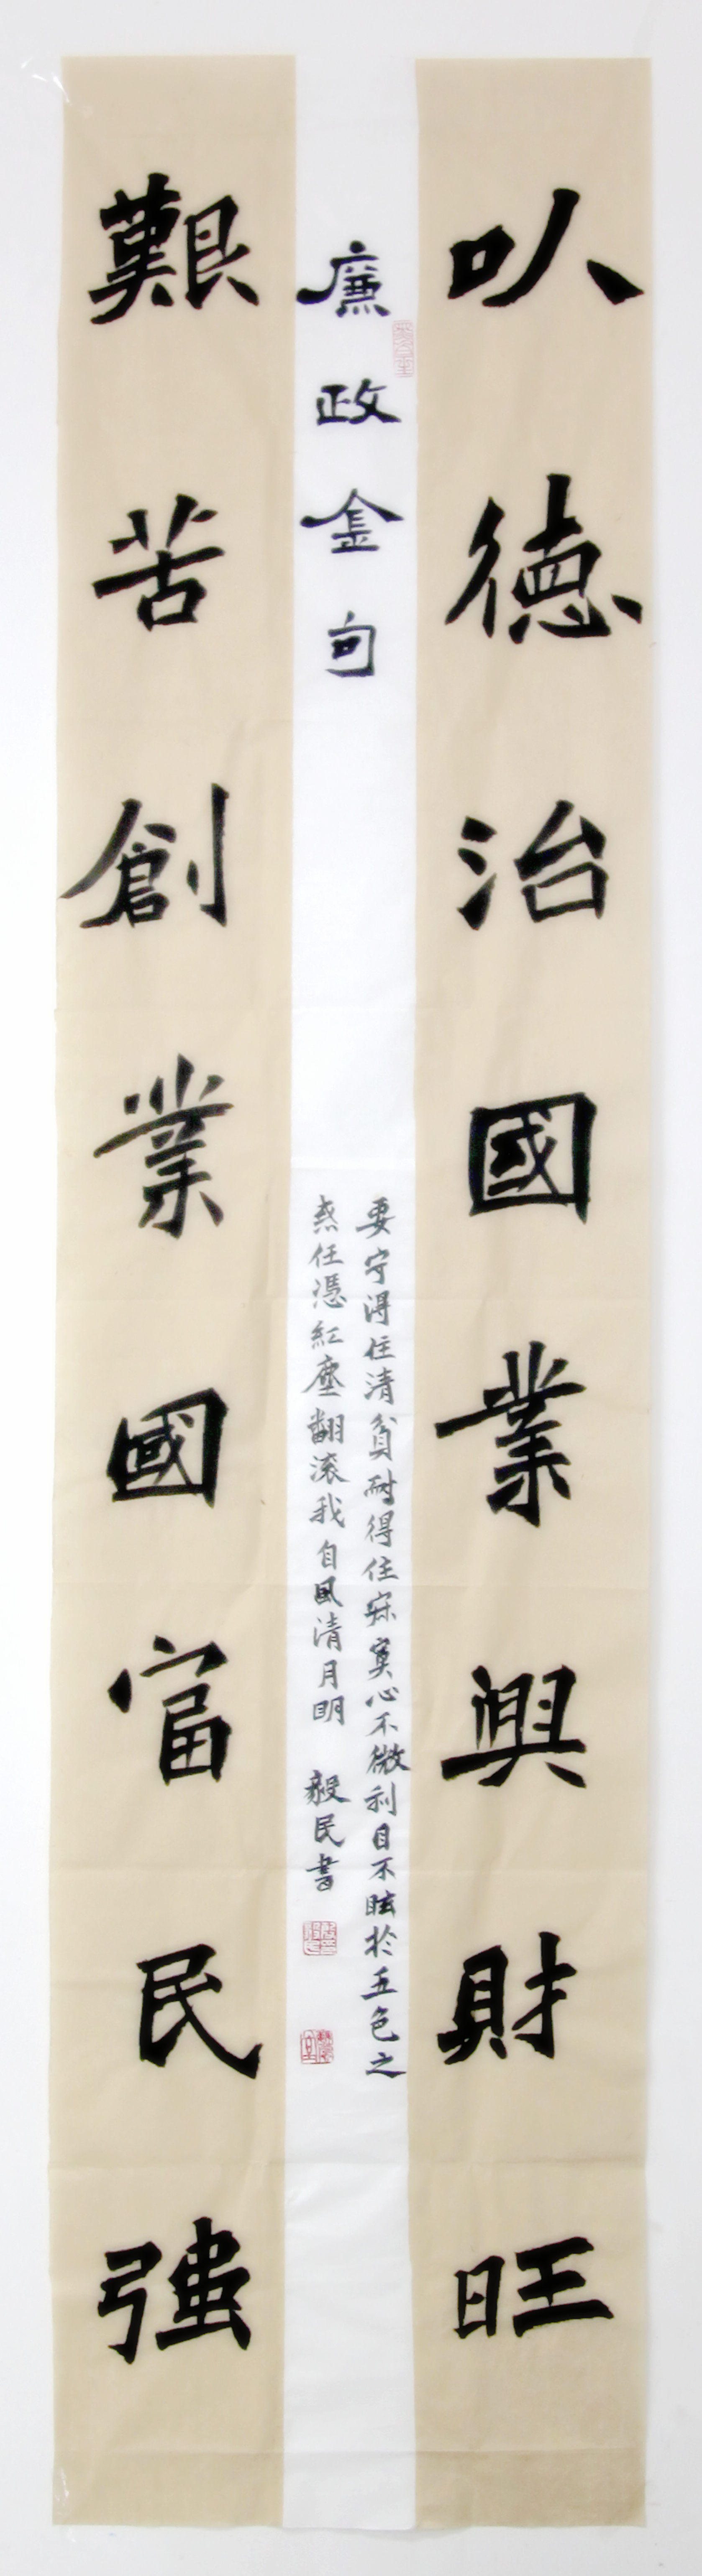 以德治國業興財旺
廉政金句
要守得住清貧耐得住寂寞心不微利目不眩於五色之
惑任憑紅塵翻滚我自風清月明 毅民書
艱苦創業國富民強